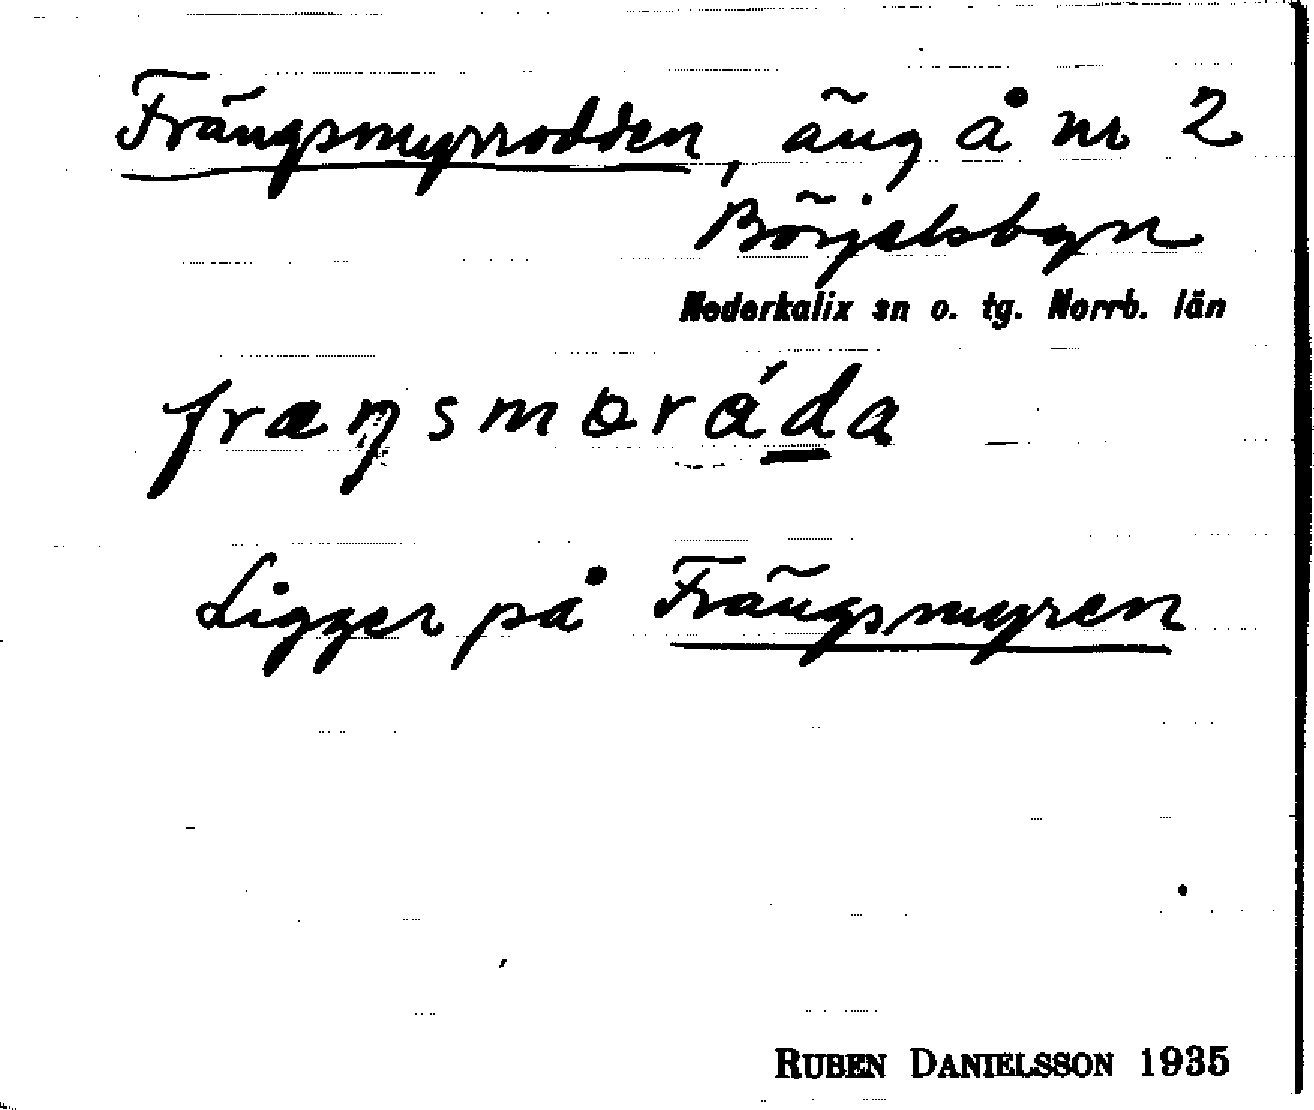 Frängsmyrrodden, äng å nr 2
Börjelsbyn
Nederkalix sn o. tg. Norrb. län
fræŋsmɵráda
Ligger på Frängsmyren
RUBEN DANIELSSON 1935